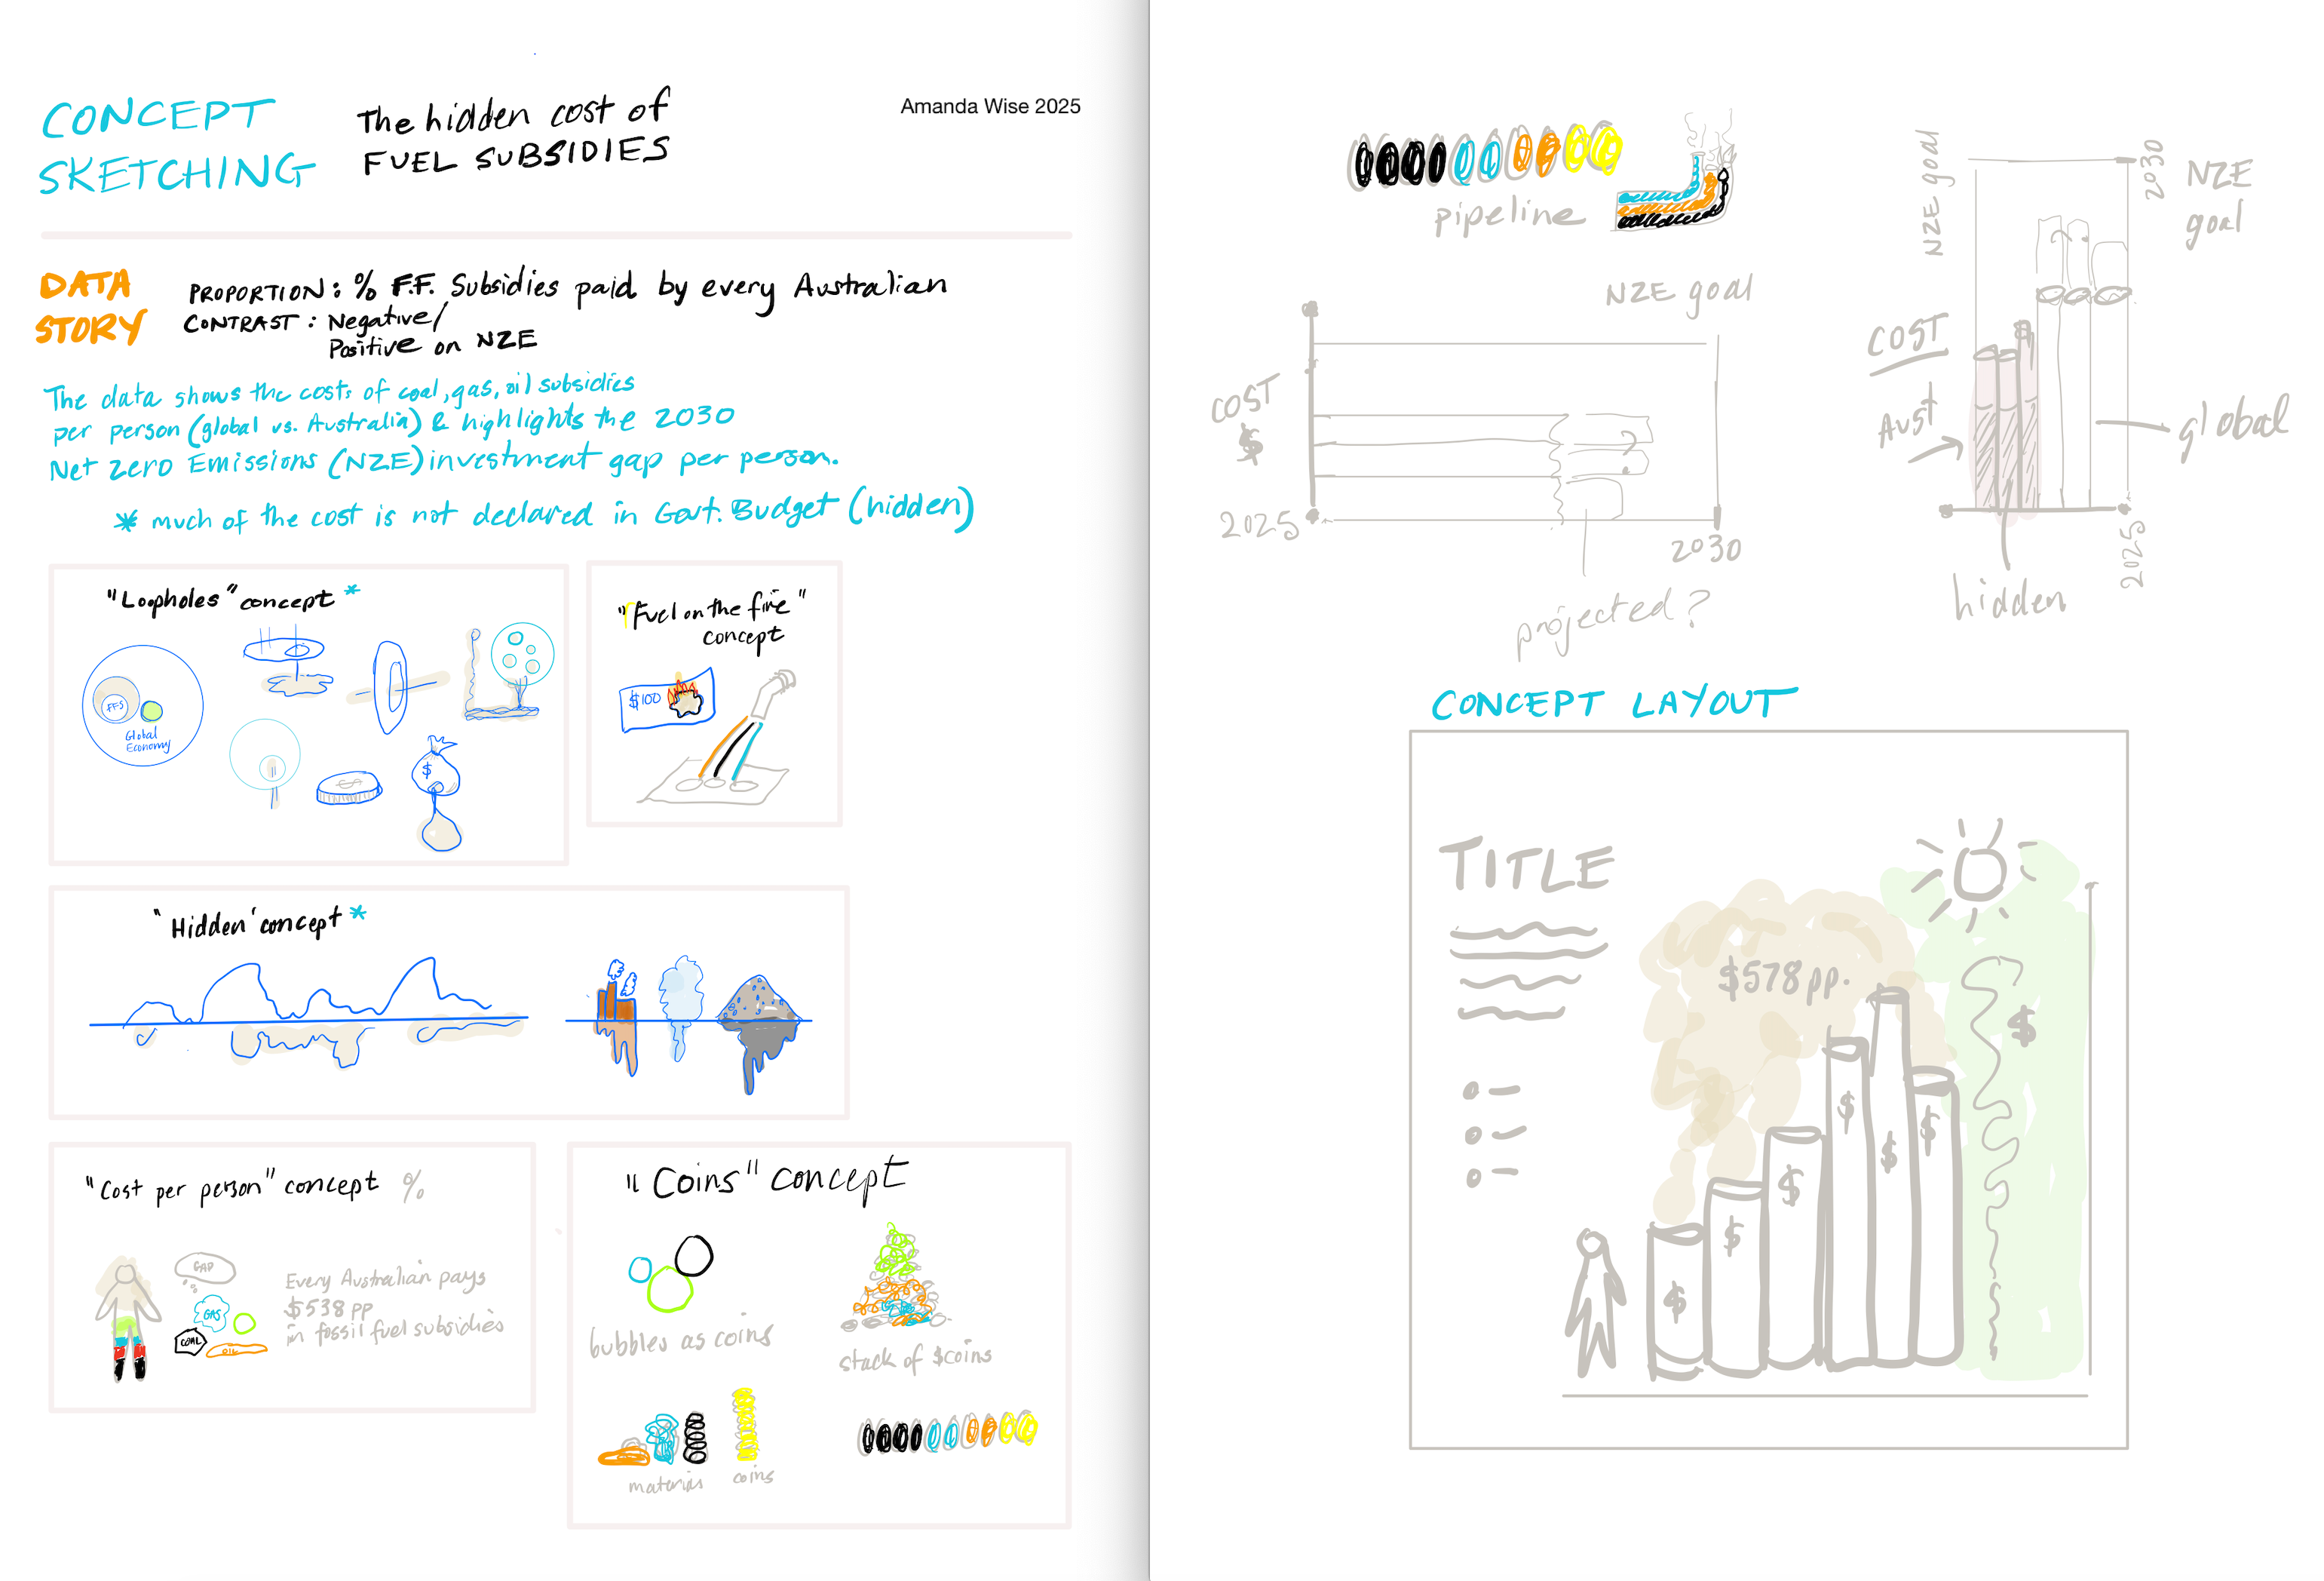 CONCEPT
SKETCHING
The hidden cost of
FUEL SUBSIDIES
Amanda Wise 2025
DATA
STORY
PROPORTION: % F.F. Subsidies paid by every Australian
CONTRAST: Negative/
Positive on NZE
The data shows the costs of coal, gas, oil subsidies
per person (global vs. Australia) & highlights the 2030
Net Zero Emissions (NZE) investment gap per person.
* much of the cost is not declared in Govt. Budget (hidden)
"Loopholes" concept *
FFS
Global
Economy
$
$
"Fuel on the fire"
concept
$100
"Hidden' concept *
"Cost per person" concept %
GAP
GAS
COAL
OIL
Every Australian pays
$538 pp
in fossil fuel subsidies
"Coins" concept
bubbles as coins
stack of $coins
materials
coins
pipeline
NZE goal
COST
$
2025
2030
projected?
?
NZE goal
2030
NZE
goal
?
COST
Aust
global
hidden
2025
CONCEPT LAYOUT
TITLE
$578 pp.
$
$
$
$
$
$
$